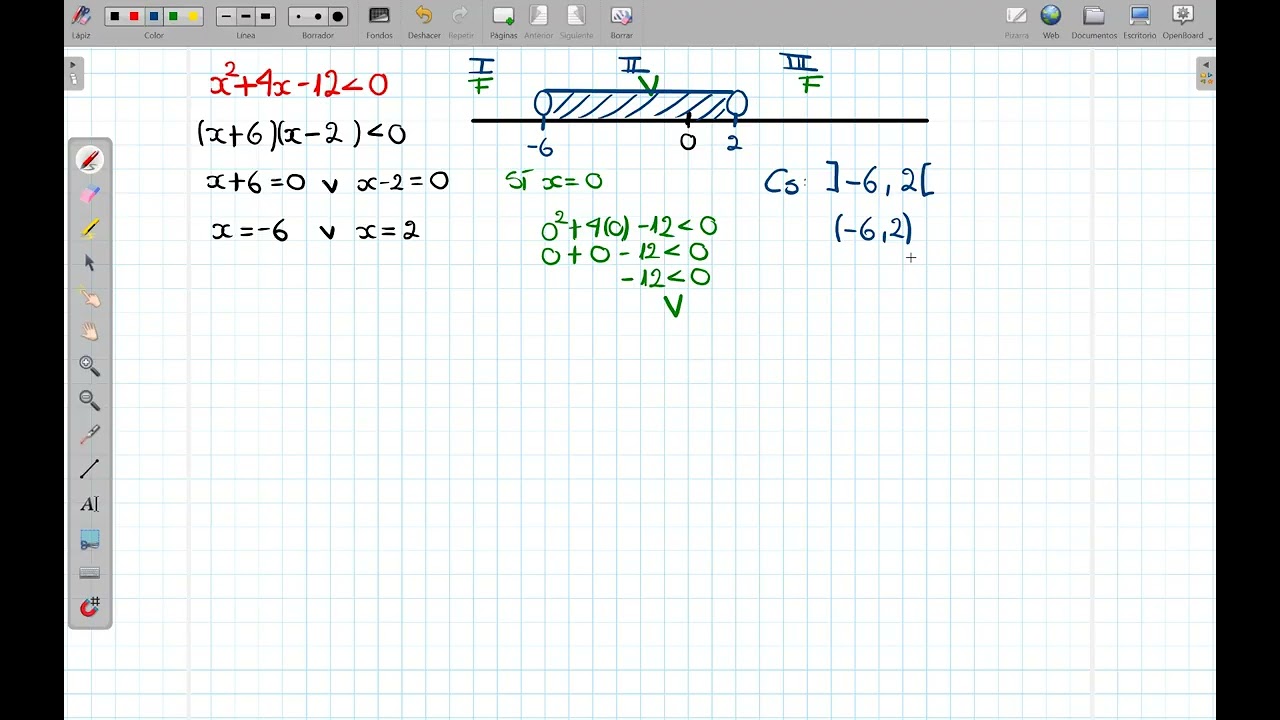 Lápiz Color Línea Borrador Fondos Deshacer Repetir Páginas Anterior Siguiente Borrar Pizarra Web Documentos Escritorio OpenBoard
x²+4x-12<0
(x+6)(x-2)<0
x+6=0 v x-2=0
x=-6 v x=2
I II III
F V F
-6 0 2
Si x=0
0²+4(0)-12<0
0+0-12<0
-12<0
V
Cs: ]-6,2[
(-6,2)
AI